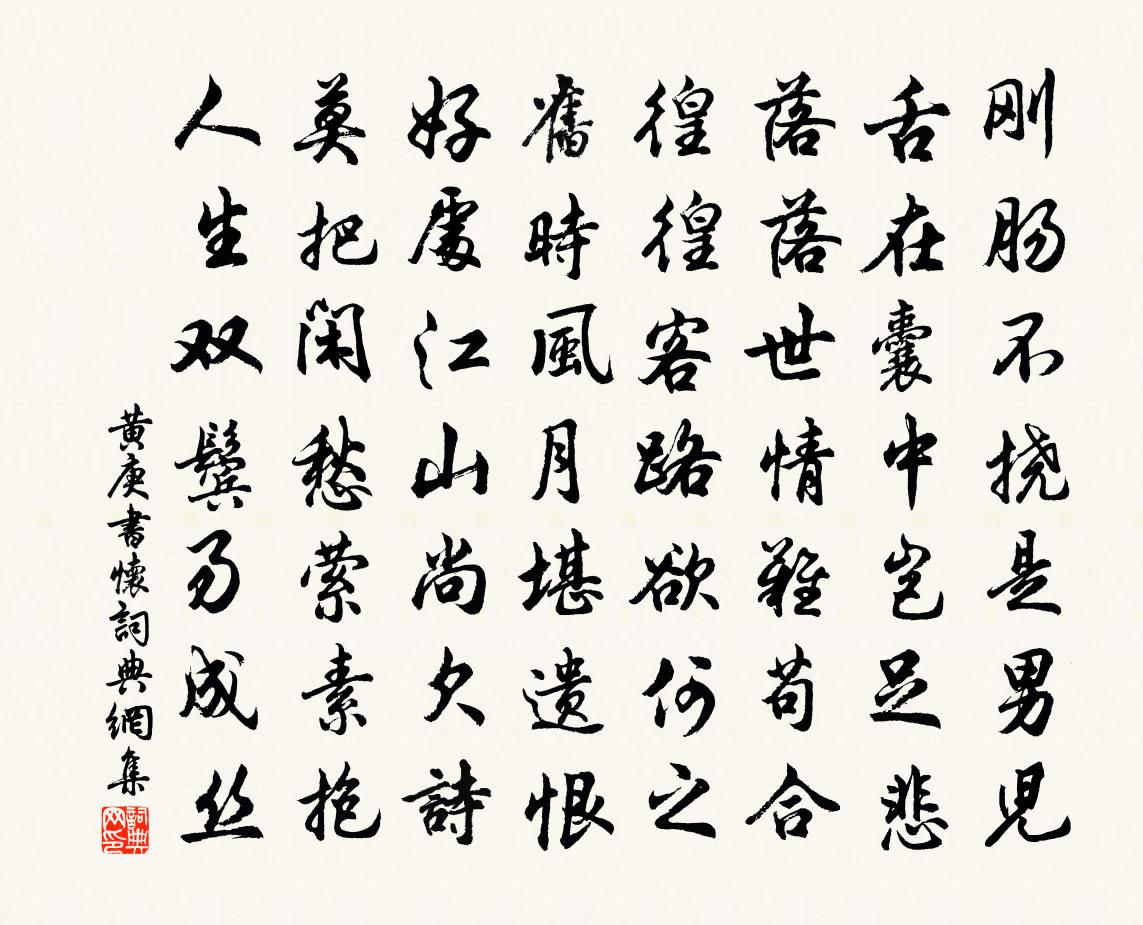 刚肠不挠是男児
舌在囊中岂足悲
落落世情难苟合
徨徨客路欲何之
舊時風月堪遗恨
好處江山尚欠詩
莫把閑愁萦素抱
人生双鬓易成丝
黄庚書懷詞典網集
詞典
网印